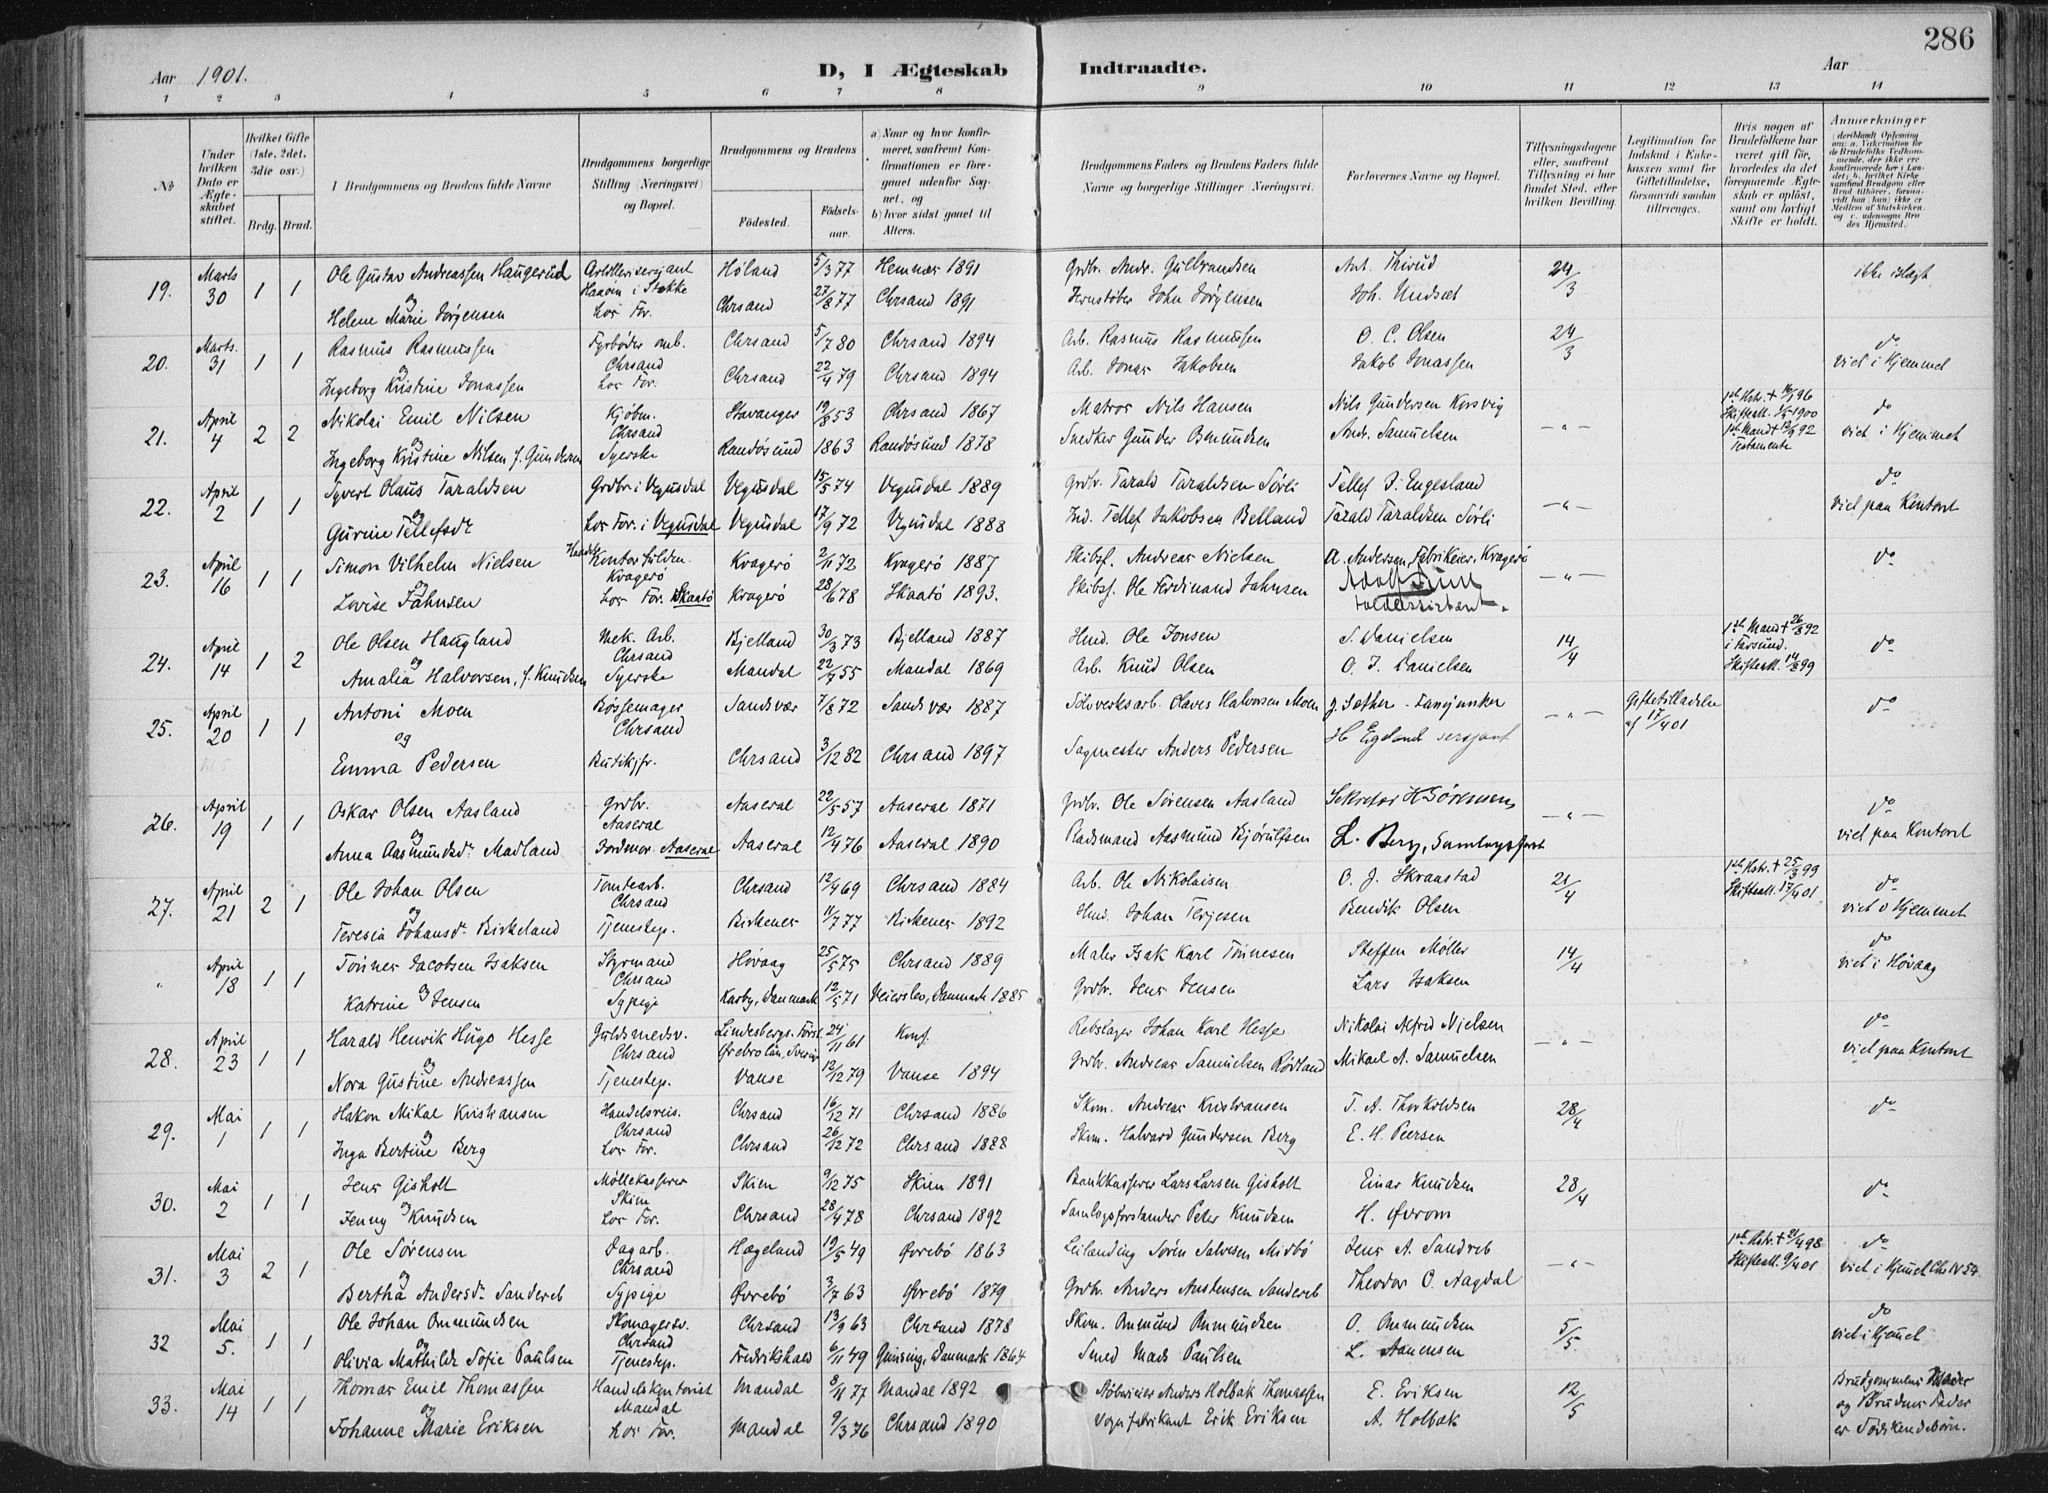 286
Aar 1901. D, I Ægteskab Indtraadte. Aar
1 2 3 4 5 6 7 8 9 10 11 12 13 14
No
Under hvilken Dato er Ægteskabet stiftet.
Hvilket Gifte (1ste, 2det, 3die osv.)
Brdg. Brud.
I Brudgommens og Brudens fulde Navne
Brudgommens borgerlige Stilling (Næringsvei) og Bopæl.
Brudgommens og Brudens
Fødested. Fødselsaar.
a) Naar og hvor konfirmeret, saafremt Konfirmationen er foregaaet udenfor Sognet, og
b) hvor sidst gaaet til Alters.
Brudgommens Faders og Brudens Faders fulde Navne og borgerlige Stillinger (Næringsvei.
Forlovernes Navne og Bopæl.
Tillysningsdagene eller, saafremt Tillysning ei har fundet Sted, efter hvilken Bevilling.
Legitimation for Indskud i Enkekassen samt for Giftetilladelse, forsaavidt saadan tiltrænges.
Hvis nogen af Brudefolkene har været gift før, hvorledes da det foregaaende Ægteskab er opløst, samt om lovligt Skifte er holdt.
Anmerkninger
19. Marts 30 1 1 Ole Gustav Andreassen Haugerud Artillerisersjant Høland 5/3 77 Hemnæs 1891 Grdbr. Andr. Gulbrandsen Ant. 24/3 ikke slægt
og Haavin i Stokke
Helene Marie Jörgensen hos For. Chrsand 27/8 77 Chrsand 1891 Jernstøber John Jörgensen Joh. Undset
20. Marts 31 1 1 Rasmus Rasmussen Fyrbøder omb. Chrsand 5/7 80 Chrsand 1894 Arb. Rasmus Rasmussen O. C. Olsen 24/3 do
og Chrsand viet i Hjemmet
Ingeborg Kristine Jonassen hos For. Chrsand 22/4 79 Chrsand 1894 Arb. Jonas Jakobsen Jakob Jonassen
21. April 4 2 2 Nikolai Emil Nilsen Kjøbm. Stavanger 19/8 53 Chrsand 1867 Matros Nils Hansen Nils Gundersen Korsvig - " - 1ste Hstr. + 16/1 96 do
og Chrsand Skifteatt. 1900 viet i Hjemmet
Ingeborg Kristine Nilsen f. Gundersen Syerske Randösund 1863 Randösund 1878 Snedker Gunder Omundsen Andr. Samuelsen 1ste Mand + 12/9 92 Testamente
22. April 2 1 1 Syvert Olaus Taraldsen Grdbr i Vegusdal Vegusdal 15/5 74 Vegusdal 1889 Grdbr. Tarald Taraldsen Sörli Tellef J. Engesland - " - do
og viet paa Kontoret
Gurine Tellefsdr hos For. i Vegusdal Vegusdal 17/9 72 Vegusdal 1888 Ind. Tellef Jakobsen Belland Tarald Taraldsen Sörli
23. April 16 1 1 Simon Vilhelm Nielsen Kontorholden. Kragerö 2/11 72 Kragerö 1887 Skibsf. Andreas Nielsen A. Andersen, Fabrikeier, Kragerö - " - do
og Kragerö
Lovise Jahnsen hos For. Skaatö Kragerö 28/6 78 Skaatö 1893. Skibsf. Ole Ferdinand Jahnsen Adolf
toldassistent.
24. April 14 1 2 Ole Olsen Haugland Mek. Arb. Bjelland 30/3 73 Bjelland 1887 Hmd. Ole Jonsen S. Danielsen 14/4 1ste Mand + 26/8 92 do
og Chrsand i Farsund.
Amalia Halvorsen, f. Knudsen Syerske Mandal 22/7 55 Mandal 1869 Arb. Knud Olsen O. J. Danielsen Skifteatt. 14/8 99
25. April 20 1 1 Antoni Moen Bøssemager Sandsvær 7/8 72 Sandsvær 1887 Sölvverksarb. Olaves Halvorsen Moen J. Sæther - Fanejunker - " - Giftetilladelse af 17/4 01 do
og Chrsand
Emma Pedersen Butikjfr. Chrsand 3/12 82 Chrsand 1897 Sagmester Anders Pedersen H Egeland sersjant
26. April 19 1 1 Oskar Olsen Aasland Grdbr. Aaseral 22/5 57 Aaseral 1871 Grdbr. Ole Sörensen Aasland Sekretær H Sörensen - " - do
og Aaseral viet paa Kontoret
Anna Aasmundsdr Madland Jordmor. Aaseral Aaseral 12/4 76 Aaseral 1890 Radsmand Aasmund Bjørulfsen L. Berg, Samlagsfors
27. April 21 2 1 Ole Johan Olsen Tomtearb. Chrsand 12/4 69 Chrsand 1884 Arb. Ole Nikolaisen O. J. Skraastad 21/4 1ste Hstr. + 25/3 99 do
og Chrsand Skifteatt. 17/4 01 viet i Hjemmet
Teresia Johansdr Birkeland Tjenestep. Birkenes 11/7 77 Birkenes 1892 Hmd. Johan Terjesen Bendik Olsen
" April 18 1 1 Tönnes Jacobsen Isaksen Styrmand Høvaag 25/5 75 Chrsand 1889 Maler Isak Karl Tönnesen Steffen Møller 14/4 do
og Chrsand viet i Høvaag
Katrine Jensen Sypige Karby, Danmark 12/5 71 Danmark 1885 Grdbr. Jens Jensen Lars Isaksen
28. April 23 1 1 Harald Henrik Hugo Hesse Guldsmedsv. Lindesbergs Förs. 24/11 61 Konf. Rebslager Johan Karl Hesse Nikolai Alfred Nielsen - " - do
og Chrsand Ørebro län, Sverige viet paa Kontoret
Nora Gustine Andreassen Tjenestep. Vanse 12/12 79 Vanse 1894 Grdbr. Andreas Samuelsen Rödland Mikael A. Samuelsen
29. Mai 1 1 1 Hakon Mikal Kristiansen Handelsreis. Chrsand 16/12 71 Chrsand 1886 Skom. Andreas Kristiansen T. A. Thorkildsen 28/4 do
og Chrsand
Inga Bertine Berg hos For. Chrsand 26/12 72 Chrsand 1888 Skom. Halvard Gundersen Berg E. H. Peersen
30. Mai 2 1 1 Jens Gisholt Møllekasserer Skien 9/12 75 Skien 1891 Bankkasserer Lars Larsen Gisholt Einar Knudsen 28/4 do
og Skien
Jenny Knudsen hos For. Chrsand 28/4 78 Chrsand 1892 Samlagsforstander Peter Knudsen H. Øvrom
31. Mai 3 2 1 Ole Sørensen Dagarb. Hægeland 19/5 49 Øvrebö 1863 Leilending Sören Salvesen Midbö Jens A. Sandreb - " - 1ste Hstr. + 4 98 do
og Chrsand Skifteatt. 9/4 01 viet i Hjemmet Chr IV 54.
Bertha Andersdr Sandereb Sypige Øvrebö 3/7 63 Øvrebö 1879 Grdbr. Anders Austensen Sandereb Theodor O. Aagdal
32 Mai 5. 1 1 Ole Johan Ommundsen Skomagersv. Chrsand 13/9 63 Chrsand 1878 Skom. Ommund Ommundsen O. Ommundsen 5/5 do
og Chrsand viet i Hjemmet
Olivia Mathilde Sofie Paulsen Tjenestep. Fredrikshald 6/11 49 Danmark 1864 Smed Mads Paulsen L. Aanensen
33. Mai 14 1 1 Thomas Emil Thomassen Handelskontorist Mandal 8/11 77 Mandal 1892 Anders Holbæk Thomassen E. Eriksen 12/5 Brudgommens Moder
og Mandal og Brudens Fader
Johanne Marie Eriksen hos For. Mandal 9/3 76 Chrsand 1890 Vognfabrikant Erik Eriksen A. Holbæk er Södskendebörn.